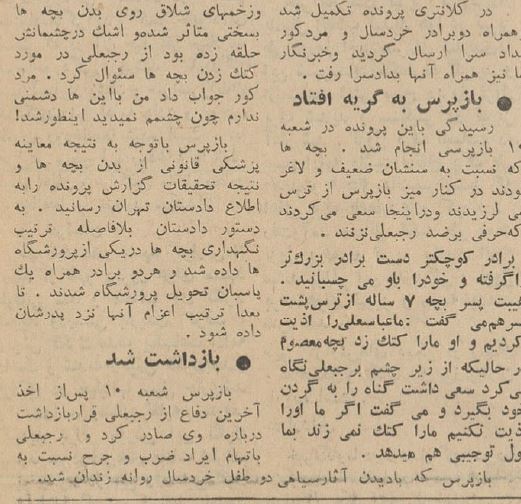 در کلانتری پرونده تکمیل شد
وهمراه دوبرادر خردسال و مردکور
بداد سرا ارسال گردید وخبرنگار
ما نیز همراه آنها بدادسرا رفت .
● بازپرس به گریه افتاد
رسیدگی باین پرونده در شعبه
۱۰ بازپرسی انجام شد . بچه ها
که نسبت به سنشان ضعیف و لاغر
بودند در کنار میز بازپرس از ترس
می لرزیدند ودراینجا سعی می‌کردند
که‌حرفی برضد رجبعلی‌نزنند .
برادر کوچکتر دست برادر بزرگ‌تر
راگرفته و خودرا باو می چسبانید .
پسر بچه ۷ ساله ازترس‌پشت
سرهم‌می گفت :ماعباسعلی‌را اذیت
کردیم و او مارا کتك زد بچه‌معصوم
در حالیکه از زیر چشم برجبعلی‌نگاه
می‌کرد سعی داشت گناه را به گردن
خود بگیرد و می گفت اگر ما اورا
اذیت نکنیم مارا کتك نمی زند بما
پول توجیبی هم میدهد .
بازپرس که بادیدن آثارسیاهی
وزخمهای شلاق روی بدن بچه ها
بسختی متاثر شده‌و اشك درچشمانش
حلقه زده بود از رجبعلی در مورد
کتك زدن بچه ها سئوال کرد . مرد
کور جواب داد من بااین ها دشمنی
ندارم چون چشمم نمیدید اینطورشد!
بازپرس باتوجه به نتیجه معاینه
پزشکی قانونی از بدن بچه ها و
نتیجه تحقیقات گزارش پرونده رابه
اطلاع دادستان تهران رسانید . به
دستور دادستان بلافاصله ترتیب
نگهداری بچه ها دریکی ازپرورشگاه
ها داده شد و هردو برادر همراه یك
پاسبان تحویل پرورشگاه شدند . تا
بعدا ترتیب اعزام آنها نزد پدرشان
داده شود .
● بازداشت شد
بازپرس شعبه ۱۰ پس‌از اخذ
آخرین دفاع از رجبعلی قراربازداشت
درباره وی صادر کرد و رجبعلی
باتهام ایراد ضرب و جرح نسبت به
دو طفل خردسال روانه زندان شد.